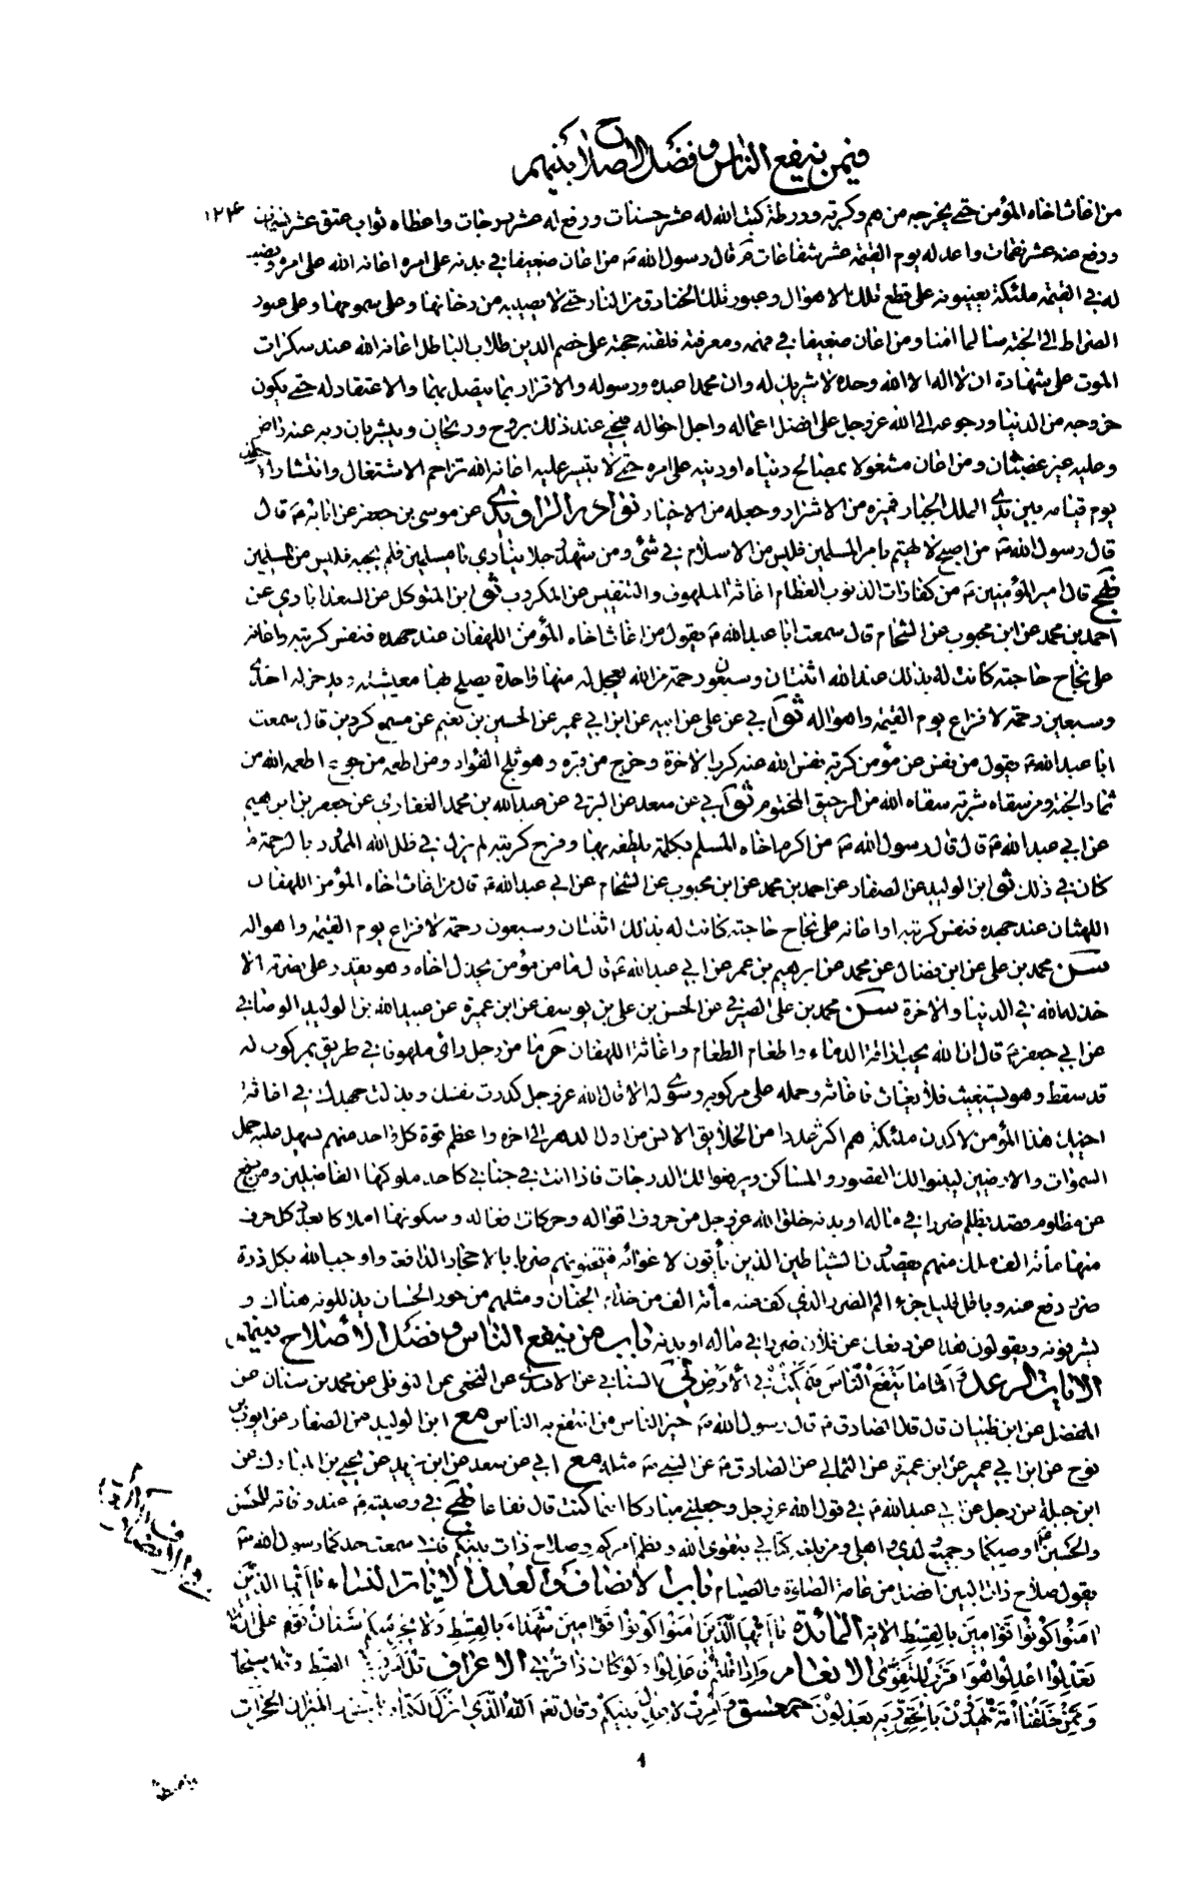 فيمن ينفع الناس و فضل الاصلاح بينهم
١٢٤
من اغاث اخاه المؤمن حتى يخرجه من هم وكربة وورطة كتب الله له عشر حسنات ورفع له عشر درجات واعطاه ثواب عتق عشر نسمات
ودفع عنه عشر نقمات واعد له يوم القيمة عشر شفاعات م قال رسول الله ص من اعان ضعيفا في بدنه على امره اعانه الله على امره ونصب
له في القيمة ملئكة يعينونه على قطع تلك الاهوال وعبور تلك الخنادق من النار حتى لا يصيبه من دخانها وعلى سمومها وعلى عبور
الصراط الى الجنة سالما امنا ومن اعان ضعيفا في فهمه ومعرفته فلقنه حجته على خصم الدين طلاب الباطل اعانه الله عند سكرات
الموت على شهادة ان لا اله الا الله وحده لا شريك له وان محمدا عبده ورسوله والاقرار بما يتصل بهما والاعتقاد له حتى يكون
خروجه من الدنيا ورجوعه الى الله عز وجل على افضل اعماله واجل احواله فيحيى عند ذلك بروح وريحان ويبشر بان ربه عنه راض
وعليه غير غضبان ومن اعان مشغولا بمصالح دنياه او دينه على امره حتى لا يتعسر عليه اعانه الله تزاحم الاشغال وانتشار الاحوال
يوم قيامه بين يدي الملك الجبار فميزه من الاشرار وجعله من الاخيار نوادر الراوندي عن موسى بن جعفر عن ابائه ع قال
قال رسول الله ص من اصبح لا يهتم بامر المسلمين فليس من الاسلام في شئ ومن شهد رجلا ينادي يا مسلمين فلم يجبه فليس من المسلمين
نهج قال امير المؤمنين ع من كفارات الذنوب العظام اغاثة الملهوف والتنفيس عن المكروب ثو ابن المتوكل عن السعدابادي عن
احمد بن محمد عن ابن محبوب عن الشحام قال سمعت ابا عبد الله ع يقول من اغاث اخاه المؤمن اللهفان عند جهده فنفس كربته واعانه
على نجاح حاجته كانت له بذلك عند الله اثنتان وسبعون رحمة من الله يعجل له منها واحدة يصلح بها معيشته ويدخر له احدى
وسبعين رحمة لافزاع يوم القيمة واهواله ثو ابي عن علي عن ابيه عن ابن ابي عمير عن الحسين بن نعيم عن مسمع كردين قال سمعت
ابا عبد الله ع يقول من نفس عن مؤمن كربة نفس الله عنه كرب الاخرة وخرج من قبره وهو ثلج الفؤاد ومن اطعمه من جوع اطعمه الله من
ثمار الجنة ومن سقاه شربة سقاه الله من الرحيق المختوم ثو ابي عن سعد عن البرقي عن عبد الله بن محمد الغفاري عن جعفر بن ابرهيم
عن ابي عبد الله ع قال قال رسول الله ص من اكرم اخاه المسلم بكلمة يلطفه بها وفرج كربته لم يزل في ظل الله الممدود بالرحمة ما
كان في ذلك ثو ابن الوليد عن الصفار عن احمد بن محمد عن ابن محبوب عن الشحام عن ابي عبد الله ع قال من اغاث اخاه المؤمن اللهفان
اللهثان عند جهده فنفس كربته او اعانه على نجاح حاجته كانت له بذلك اثنتان وسبعون رحمة لافزاع يوم القيمة واهواله
سن محمد بن علي عن ابن فضال عن محمد عن ابرهيم بن عمر عن ابي عبد الله ع قال ما من مؤمن يخذل اخاه وهو يقدر على نصرته الا
خذله الله في الدنيا والاخرة سن محمد بن علي الصيرفي عن الحسن بن علي بن يوسف عن ابن عميرة عن عبيد الله بن الوليد الوصافي
عن ابي جعفر ع قال ان الله يحب اراقة الدماء واطعام الطعام واغاثة اللهفان م ما من رجل رأى ملهوفا في طريق بمركوب له
قد سقط وهو يستغيث فلا يغاث فاغاثه وحمله على مركوبه وسوى له الا قال الله عز وجل كددت نفسك وبذلت جهدك في اغاثة
اخيك هذا المؤمن لاكدن ملئكة هم اكثر عددا من الخلايق الانس من اول الدهر الى اخره واعظم قوة كل واحد منهم يسهل عليه حمل
السموات والارضين ليبنوا لك القصور والمساكن ويرفعوا لك الدرجات فاذا انت في جناني كاحد ملوكها الفاضلين ومن دفع
عن مظلوم قصد بظلم ضررا في ماله او بدنه خلق الله عز وجل من حروف اقواله وحركات افعاله وسكونها املاكا بعدد كل حرف
منها مائة الف ملك كل ملك منهم يقصدون الشياطين الذين يأتون لاغوائه فيثخنونهم ضربا بالاحجار الدافعة واوجب الله بكل ذرة
ضرر دفع عنه وباقل قليل جزء الم الضرر الذي كف عنه مأة الف من خدام الجنان ومثلهم من حور الحسان يدللونه هناك و
يشرفونه ويقولون هذا بدفعك عن فلان ضررا في ماله او بدنه باب من ينفع الناس و فضل الاصلاح بينهم
الايات الرعد و اما ما ينفع الناس فيمكث في الارض لي السناني عن الاسدي عن النخعي عن النوفلي عن محمد بن سنان عن
المفضل عن ابن ظبيان قال قال الصادق ع قال رسول الله ص خير الناس من انتفع به الناس مع ابن الوليد عن الصفار عن ايوب بن
نوح عن ابن ابي عمير عن ابن عميرة عن الثمالي عن الصادق ع عن النبي ص مثله مع ابي عن سعد عن ابن يزيد عن يحيى بن المبارك عن
ابن جبلة عن رجل عن ابي عبد الله ع في قول الله عز وجل وجعلني مباركا اينما كنت قال نفاعا نهج في وصيته ع عند وفاته للحسن
والحسين اوصيكما وجميع ولدي واهلي ومن بلغه كتابي بتقوى الله ونظم امركم وصلاح ذات بينكم فاني سمعت جدكما رسول الله ص
يقول صلاح ذات البين افضل من عامة الصلوة والصيام باب الانصاف والعدل الايات النساء يا ايها الذين
امنوا كونوا قوامين بالقسط الاية المائدة يا ايها الذين امنوا كونوا قوامين شهداء بالقسط ولا يجرمنكم شنئان قوم على الا
تعدلوا اعدلوا هو اقرب للتقوى الانعام واذا قلتم فاعدلوا ولو كان ذا قربى الاعراف قل امر ربي بالقسط وقال سبحانه
وممن خلقنا امة يهدون بالحق وبه يعدلون حمعسق وامرت لاعدل بينكم وقال تعه الله الذي انزل الكتاب بالحق والميزان الحجرات
١